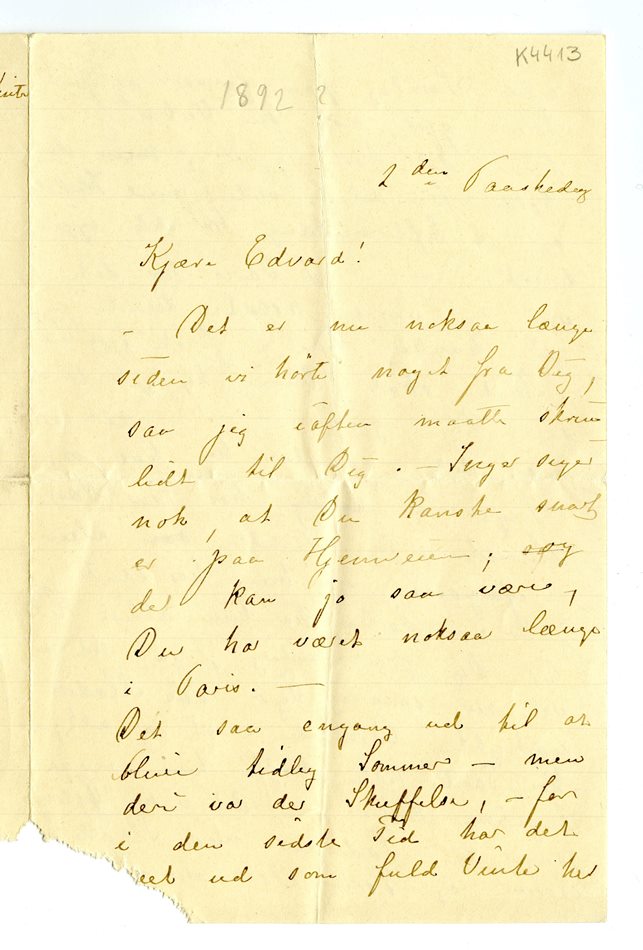 K4413
1892 ?
2 den Paaskedag
Kjære Edvard!
- Det er nu noksaa længe
siden vi hørte noget fra Dig,
saa jeg iaften maatte skrive
lidt til Dig. - Inger siger
nok, at Du kanske snart
er paa Hjemveien;
det kan jo saa være,
Du har været noksaa længe
i Paris. —
Det saa engang ud til at
blive tidlig Sommer - men
deri var der Skuffelse, - for
i den sidste Tid har det
seet ud som fuld Vinter her